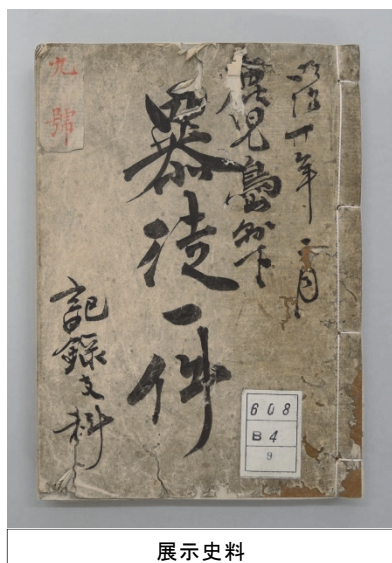 明治十年二月
鹿児島縣下
暴徒一件
記録
九號
608
B4
9
展示史料